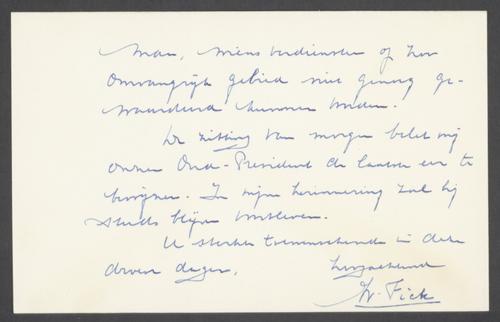 man, wiens verdiensten op zo'n
omvangrijk gebied niet genoeg ge-
waardeerd kunnen worden.
De zitting van morgen belet mij
onzen Oud-President de laatste eer te
bewijzen. In mijn herinnering zal hij
steeds blijven voortleven.
U sterkte toewenschende in deze
droeve dagen,
hoogachtend
W. Fick